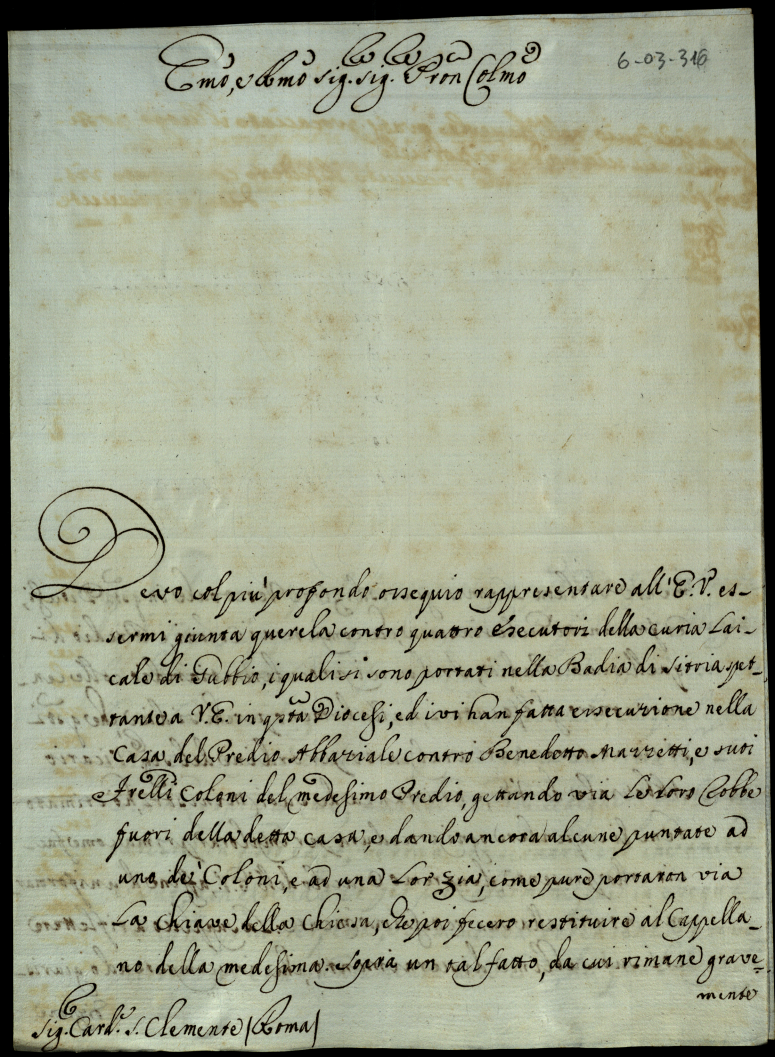 Emo, e Rmo Sig.r Sig.r Pron Colmo
6-03-316
Devo col più profondo ossequio rappresentare all'E.V. es-
sermi giunta querela contro quattro esecutori della Curia Lai-
cale di Gubbio, i quali si sono portati nella Badia di Sitria spet-
tante a V.E. in qsta Diocesi, ed ivi han fatta esecuzione nella
Casa del Predio Abbaziale contro Benedetto Marzetti, e suoi
Frelli Coloni del medesimo Predio, gettando via le loro Robbe
fuori della detta casa, e dando ancora alcune puntate ad
uno de' Coloni, e ad una Lor zia, come pure portaron via
La Chiave della Chiesa, che poi fecero restituire al Cappella-
no della medesima. Sopra un tal fatto, da cui rimane grave-
mente
Sig.r Card.e S. Clemente (Roma)